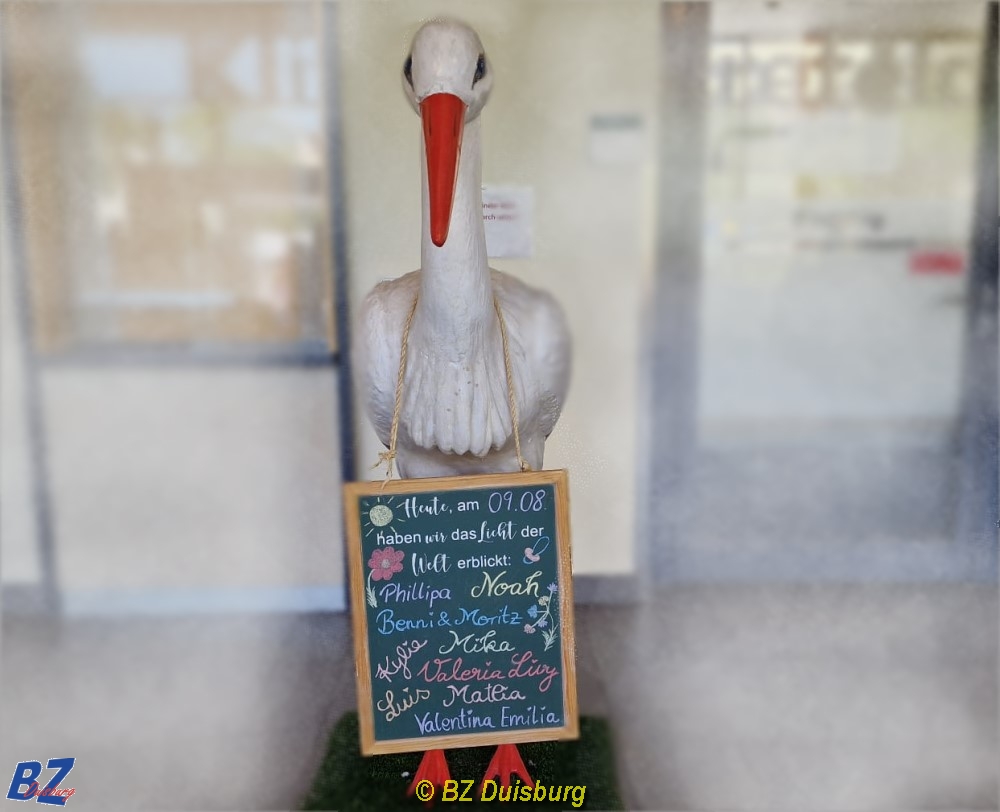 Heute, am 09.08.
haben wir das Licht der
Welt erblickt:
Phillipa Noah
Benni & Moritz
Kylie Mika
Valeria Livy
Luis
Valentina Emilia
BZ
Duisburg
© BZ Duisburg